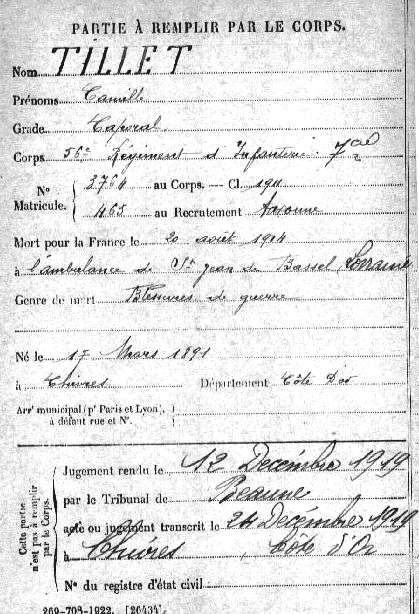 PARTIE À REMPLIR PAR LE CORPS.
Nom TILLET
Prénoms Camille
Grade Caporal
Corps 56e Régiment d'Infanterie
N° Matricule. 3764 au Corps. — Cl. 1911
465 au Recrutement Auxonne
Mort pour la France le 20 août 1914
à l'ambulance de St Jean de Bassel Lorraine
Genre de mort Blessures de guerre
Né le 17 Mars 1891
à Chivres Département Côte d'or
Arrt municipal (pr Paris et Lyon),
à défaut rue et N°.
Cette partie n'est pas à remplir par le Corps.
Jugement rendu le 12 Decémbre 1919
par le Tribunal de Beaune
acte ou jugement transcrit le 24 Decémbre 1919
à Chivres, Côte d'Or
N° du registre d'état civil
269-708-1922. [26434]